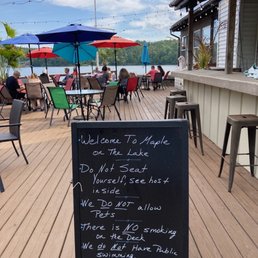 Welcome To Maple
on The Lake
Do Not Seat
Yourself, see host
inside
We DO NOT allow
Pets
There is NO smoking
on the Deck
We do Not Have Public
swimming